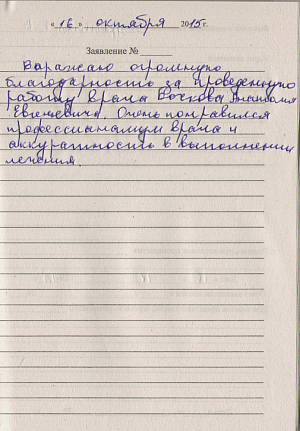 « 16 » октября 2015 г.
Заявление №
Варажаю огромную
благодарность за проведенную
работу врача Воскова Анатолия
Евгеневича. Очень понравился
профессианализм врача и
аккуратность в выполнении
лечения.